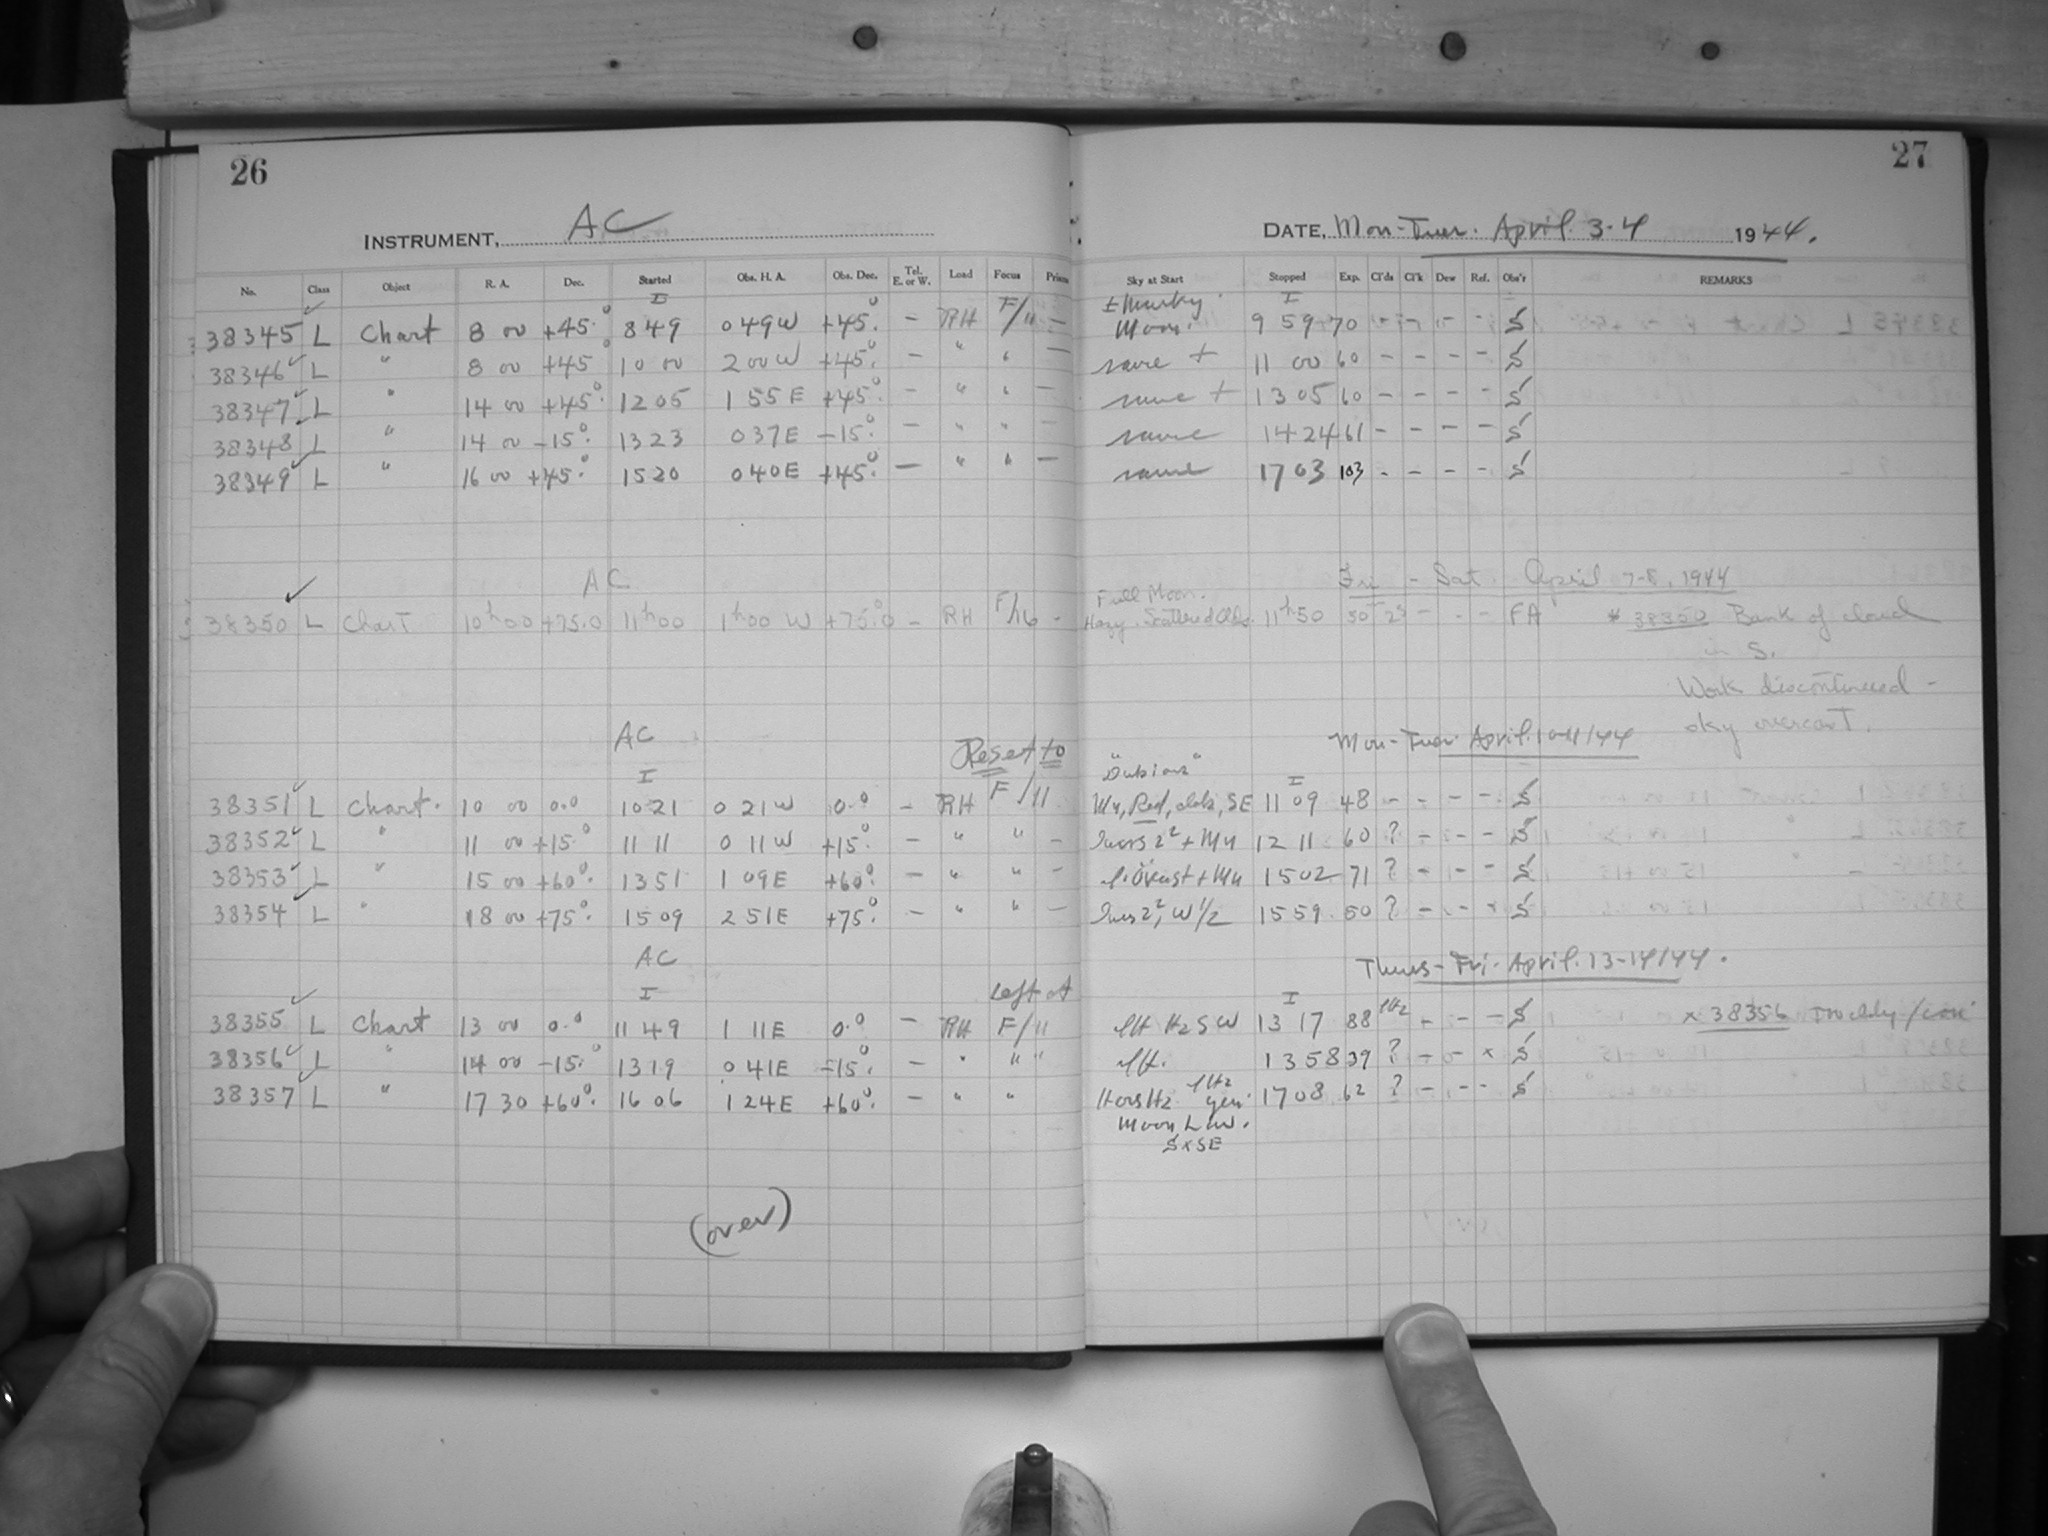 26
27
INSTRUMENT, AC
DATE, Mon-Tues. April 3-4 1944.
No. Class Object R. A. Dec. Started Obs. H. A. Obs. Dec. Tel. E. or W. Load Focus Sky at Start Stopped Exp. Cl'ds Cl'k Dew Ref. Obs'r REMARKS
I I
38345 L Chart 8 00 +45.° 849 0 49W +45.° - RH F/11 - ± Murky Moon. 9 59 70 - - - - S
38346 L " 8 00 +45° 10 00 2 00W +45.° - " " - same + 11 00 60 - - - - S
38347 L " 14 00 +45.° 12 05 1 55E +45.° - " " - same + 13 05 60 - - - - S
38348 L " 14 00 -15.° 13 23 0 37E -15.° - " " - same 14 24 61 - - - - S
38349 L " 16 00 +45.° 15 20 0 40E +45.° - " " - same 17 03 103 - - - - S
AC Fri - Sat. April 7-8, 1944
38350 L Chart 10ʰ00 +75.0 11ʰ00 1ʰ00 W +75.°0 - RH F/16 - Full Moon. Hazy. Scattered Clds. 11ʰ50 50 - - - FA * 38350 Bank of cloud
in S.
Work discontinued -
sky overcast.
AC Mon-Tues April 10-11/44
Reset to
I "Dubious" I
38351 L Chart. 10 00 0.0 10 21 0 21W 0.° - RH F/11 My, Red, clds, SE 11 09 48 - - - - S
38352 L " 11 00 +15.° 11 11 0 11W +15.° - " " - 2² + My 12 11 60 ? - - - S
38353 L " 15 00 +60.° 13 51 1 09E +60.° - " " - + My 15 02 71 ? - - - S
38354 L " 18 00 +75.° 15 09 2 51E +75.° - " " - 2², W 1/2 15 59 50 ? - - x S
AC Thurs-Fri. April. 13-14/44.
I Left at I
38355 L Chart 13 00 0.0 11 49 1 11E 0.° - RH F/11 lt Hz SW 13 17 88 lt Hz - - - S x 38356
38356 L " 14 00 -15.° 13 19 0 41E -15.° - " " " 13 58 39 ? - - x S
38357 L " 17 30 +60.° 16 06 1 24E +60.° - " " Hz lHz gen. 17 08 62 ? - - - S
Moon Low.
SxSE
(over)